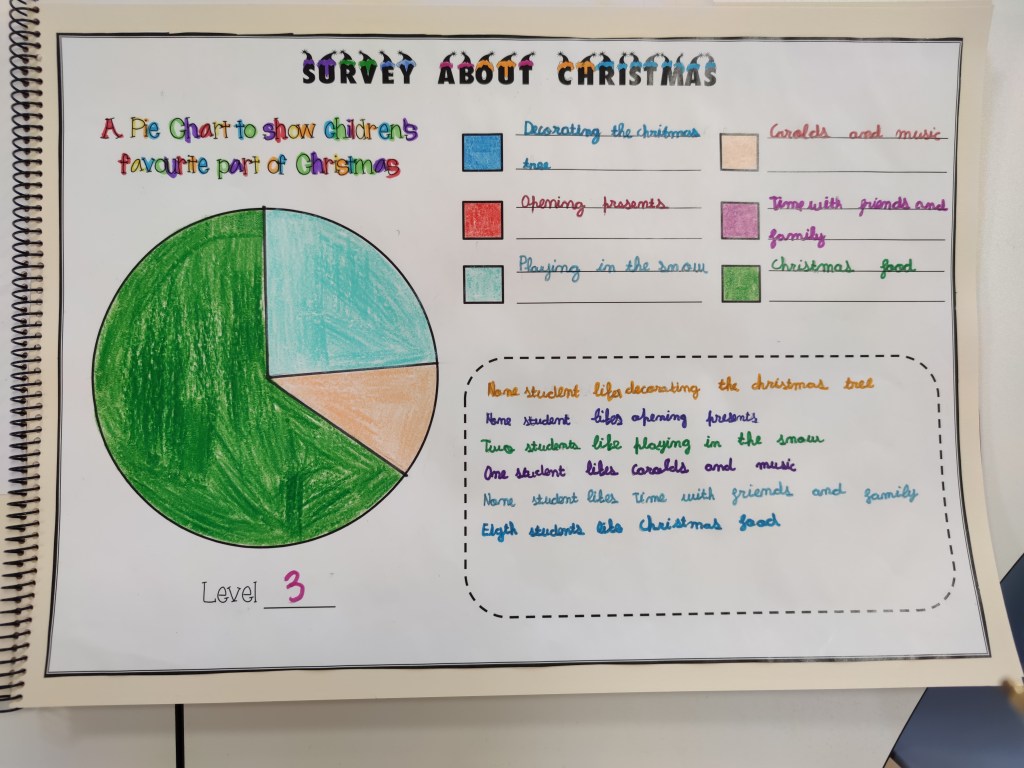 SURVEY ABOUT CHRISTMAS
A Pie Chart to show children's
favourite part of Christmas
Decorating the chritmas
tree
Opening presents
Playing in the snow
Carolds and music
Time with friends and
family
Christmas food
Level 3
None student likes decorating the christmas tree
None student likes opening presents
Two students like playing in the snow
One student likes carolds and music
None student likes time with friends and family
Eigth students like Christmas food